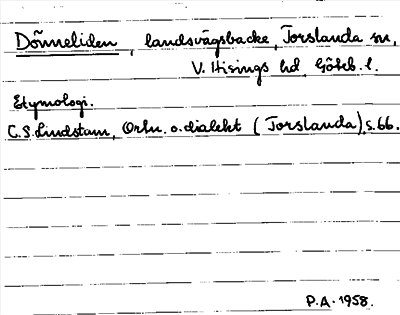 Dönneliden, landsvägsbacke, Torslanda sn,
V. Hisings hd, Göteb. l.
Etymologi.
C.S. Lindstam, Ortn. o. dialekt (Torslanda), s. 66.
P.A. 1958.